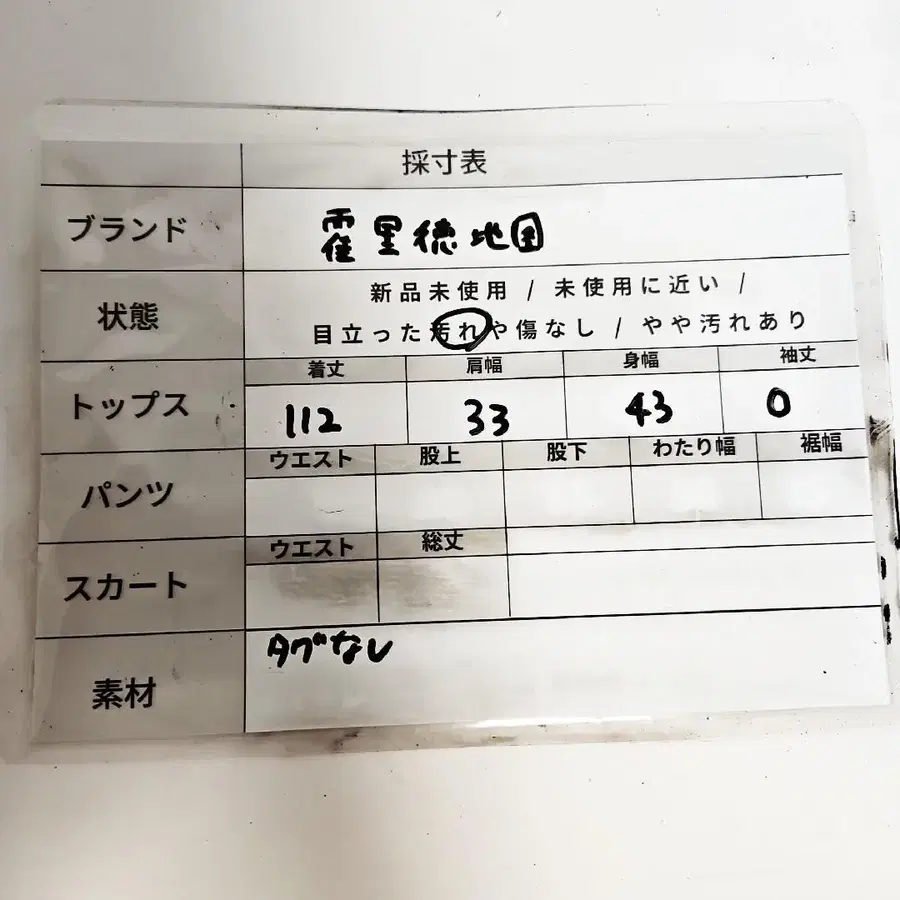 採寸表
ブランド 霍里德地图
状態 新品未使用 / 未使用に近い /
目立った汚れや傷なし / やや汚れあり
着丈 肩幅 身幅 袖丈
トップス 112 33 43 0
ウエスト 股上 股下 わたり幅 裾幅
パンツ
ウエスト 総丈
スカート
タグなし
素材